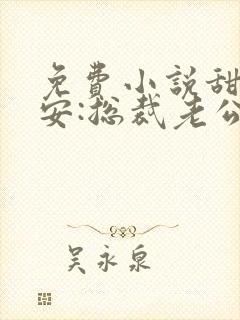 免費小說甜
安:总裁老公
吴永泉